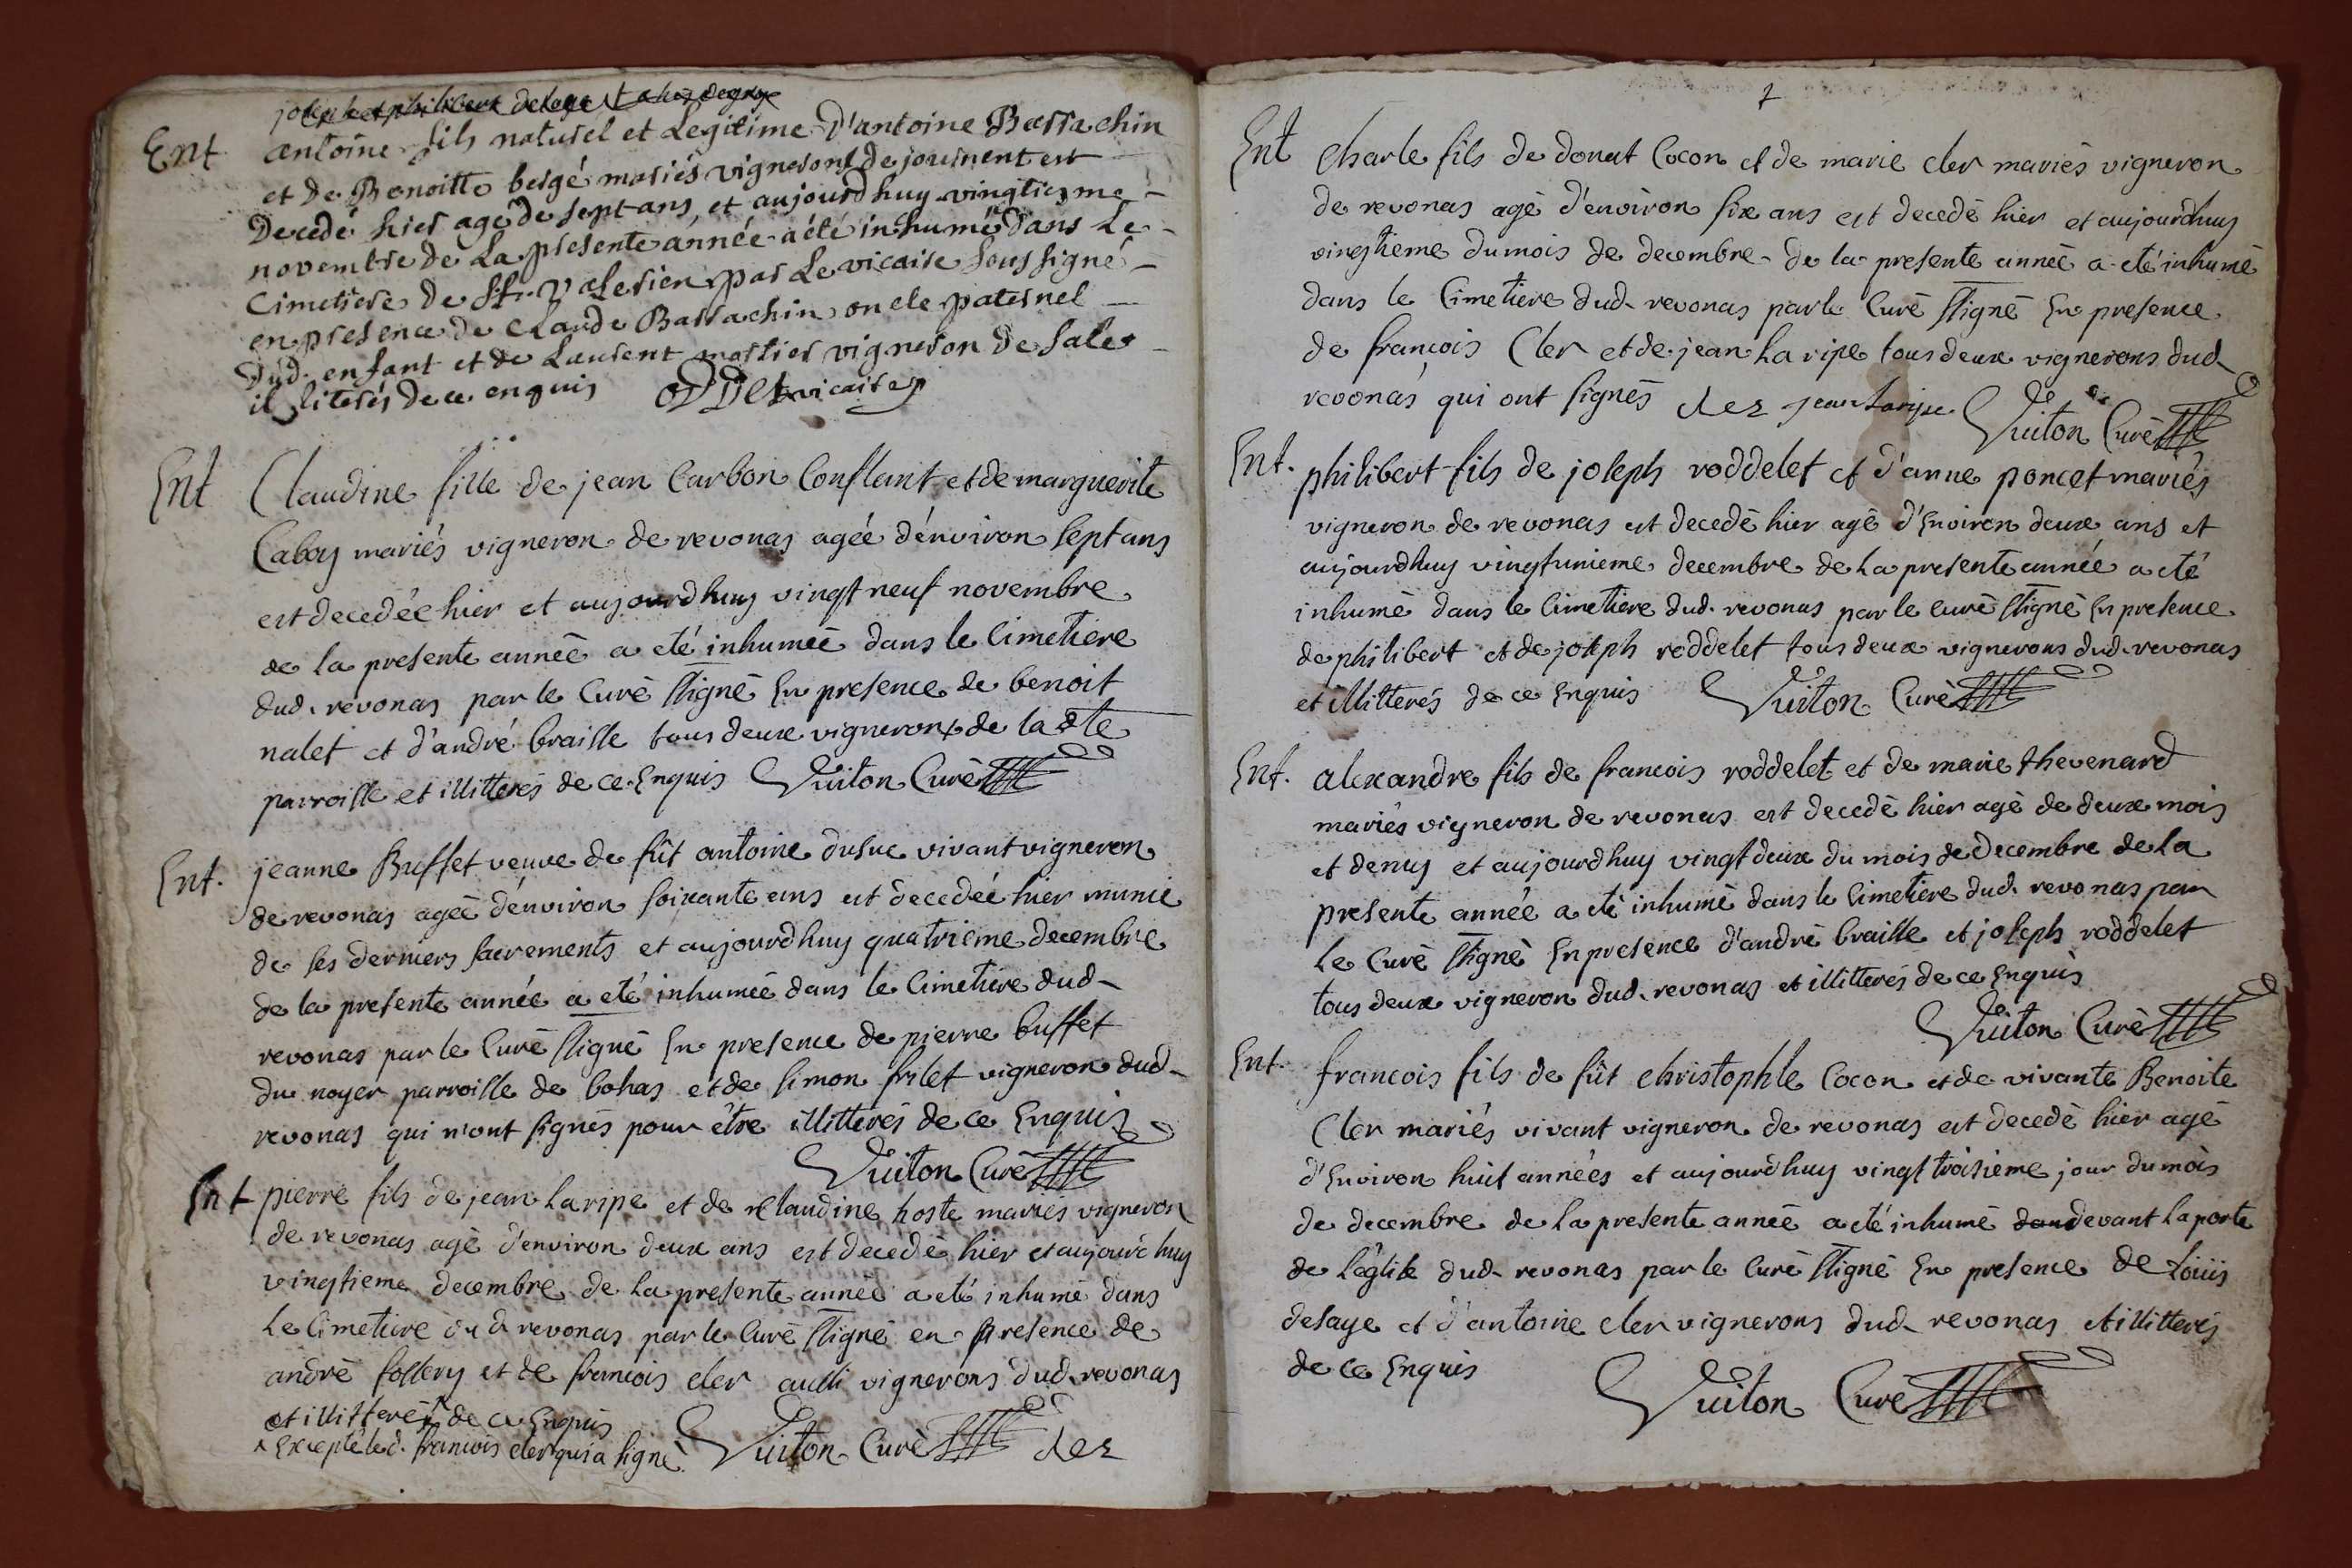 joseph et philibert delage
Ent antoine fils naturel et Legitime D'antoine Bassachin
et de Benoitte bergé mariés vignerons de journent est
Decedé hier agé de sept ans, et aujourdhuy vingtiesme
novembre de La presente année a été inhumé dans Le
Cimetiere de St. valerien par Le vicaire soussigné
en presence de claude Bassachin oncle paternel
dud. enfant et de Laurent mortier vigneron de sales
illiterés de ce enquis vicaire
Ent Claudine fille de jean Carbon Conflant et de marguerite
Caboy mariés vigneron de revonas agée d'environ sept ans
est decedée hier et aujourdhuy vingt neuf novembre
de la presente année a eté inhumeé dans le Cimetiere
dud. revonas par le Curé ssigné En presence de benoit
nalet et d'andré braisse tous deux vignerons de la dte
parroisse et illitterés de ce Enquis Vuiton Curé
Ent. jeanne Buffet veuve de fût antoine dusuc vivant vigneron
de revonas ageé d'environ soixante ans est decedeé hier munie
de ses derniers sacrements et aujourdhuy quatrieme decembre
de la presente année a eté inhumeé dans le Cimetiere dud.
revonas par le Curé ssigné En presence de pierre buffet
du noyer parroisse de bohas et de simon frilet vigneron dud.
revonas qui n'ont signés pour être illitterés de ce Enquis
Vuiton Curé
Ent pierre fils de jean Laripe et de Claudine hoste mariés vigneron
de revonas agé d'environ deux ans est decedé hier et aujourd huy
vingtieme decembre de La presente année a eté inhumé dans
Le Cimetiere dud revonas par le Curé ssigné en presence de
andré follery et de francois cler aussi vignerons dud. revonas
et illitterés de ce Enquis
Excepté led. francois cler qui a signé Vuiton Curé clez
Ent Charle fils de donat Cocon et de marie cler mariés vigneron
de revonas agé d'environ six ans est decedé hier et aujourdhuy
vingtieme du mois de decembre de la presente année a eté inhumé
dans le Cimetiere dud. revonas par le Curé ssigné En presence
de francois Cler et de jean Laripe tous deux vignerons dud
revonas qui ont signés clez jean Laripe Vuiton Curé
Ent. philibert fils de joseph roddelet et d'anne poncet mariés
vigneron de revonas est decedé hier agé d'Environ deux ans et
aujourdhuy vingtunieme decembre de La presente année a eté
inhumé dans le Cimetiere dud. revonas par le Curé ssigné En presence
de philibert et de joseph roddelet tous deux vignerons dud. revonas
et illitterés de ce Enquis Vuiton Curé
Ent. alexandre fils de francois roddelet et de marie thevenard
mariés vigneron de revonas est decedé hier agé de deux mois
et demy et aujourdhuy vingt deux du mois de Decembre de La
presente année a eté inhumé dans le Cimetiere dud. revonas par
Le Curé ssigné En presence d'andré braisse et joseph roddelet
tous deux vigneron dud. revonas et illitterés de ce Enquis
Vuiton Curé
Ent. francois fils de fût christophle Cocon et de vivante Benoite
Cler mariés vivant vigneron de revonas est decedé hier agé
d'Environ huit années et aujourdhuy vingt troisieme jour du mois
de decembre de La presente année a eté inhumé dan devant La porte
de L'église dud. revonas par le Curé ssigné En presence de Loüis
delaye et d'antoine cler vignerons dud. revonas et illitterés
de ce Enquis
Vuiton Curé